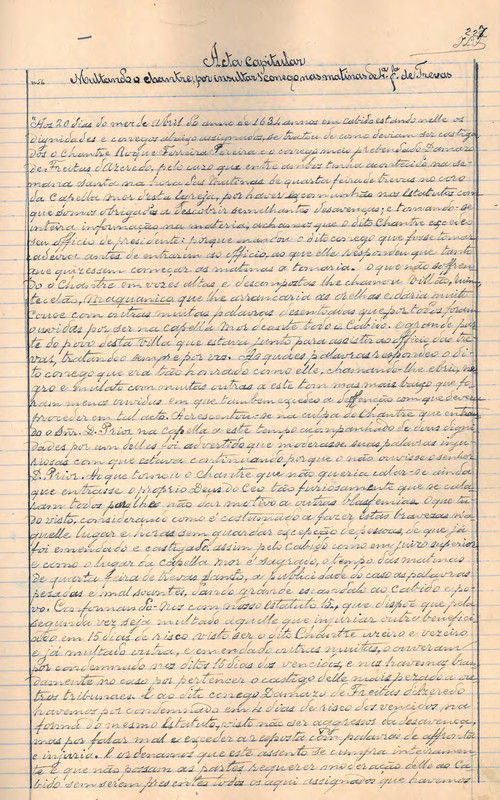 227
Acta Capitular
Multando o chantre, por insultar 1 conego nas matinas de 4ª fª de Trevas
Aos 20 dias do mez de Abril do anno de 1634 annos em cabido estando nelle os
dignidades e conegos abaixo assignados, se tratou de como deviam ser castiga
dos o Chantre Roque Ferreira Pereira e o conego meio prebendado Damazo
de Freitas d'Azeredo, pelo caso que entre ambos tinha acontecido na se-
mana santa na hora das matinas de quarta feira de trevas no coro
da Capella mor desta Igreja, por haver excommunhão nos Estatutos com
que somos obrigados a descobrir semelhantes desavenças; e tomando-se
inteira informação na materia, achamos que o dito Chantre excedeo
seu officio de presidente: porque mandou o dito conego que fosse tomar
cadeira antes de entrarem ao officio, ao que elle respondeu que tanto
que quizessem começar as matinas a tomaria. O que não soffren
do o Chantre em vozes altas e descompostas lhe chamou villão, ruim
que lhe arrancaria as orelhas e daria muito
couce com outras muitas palavras desentoadas que por todos foram
ouvidas por ser na capella Mor deante todo o Cabido, e grande par
te do povo desta Villa que estava junto para assistir ao officio das tre
vas, tratando-o sempre por vós. As quaes palavras respondeo o di-
to conego que era tão honrado como elle, chamando-lhe ebrio, ne
gro e mulato com muitas outras a este tom mas mais baixo que fo
ram menos ouvidas em que tambem excedeo a deffenção com que deveu
proceder em tal acto. Acrescentou-se na culpa do Chantre que entran
do o Snr. D. Prior na capella a este tempo acompanhado de duas digni
dades, por um delles foi advertido que moderasse suas palavras inju
riosas com que estava continuando porque o não ouvisse o senhor
D. Prior. Ao que tornou o Chantre que não queria calar-se ainda
que entrasse o proprio Deus do Ceo tão furiosamente que se cala
ram todos por lhe não dar motivo a outras blasfemias. O que tu
do visto, considerando como é costumado a fazer estas bravezas na
quelle lugar e horas sem guardar excepção de pessoas, de que já
foi emendado e castigado, assim pelo Cabido como em juizo superior
e como o lugar da capella mor é sagrado, o tempo das matinas
de quarta feira de trevas santo, a publicidade do caso as palavras
pezadas e mal soantes, dando grande escandalo ao Cabido e po-
vo. Conformando-Nos com nosso Estatuto 12, que dispõe que pela
segunda vez seja multado aquelle que injuriar outro benefici
ado em 15 dias de risco visto ser o dito Chantre useiro e vezeiro
e já multado outra, e emendado outras muitas, o averam
por condemnado nos ditos 15 dias dos vencidos, e nos havemos bran
damente no caso por pertencer o castigo delle mais pezado a ou
tros tribunaes. E ao dito conego Damazo de Freitas d'Azeredo
havemos por condemnado em 4 dias de risco dos vencidos, na
forma do mesmo Estatuto, visto não ser aggressor da desavença,
mas por fallar mal e exceder a resposta com palavras de affronta
e injuria. E ordenamos que este assento se cumpra inteiramen
te e que não possam as partes requerer moderação delle ao Ca
bido sem serem presentes todos os aqui assignados que havemos